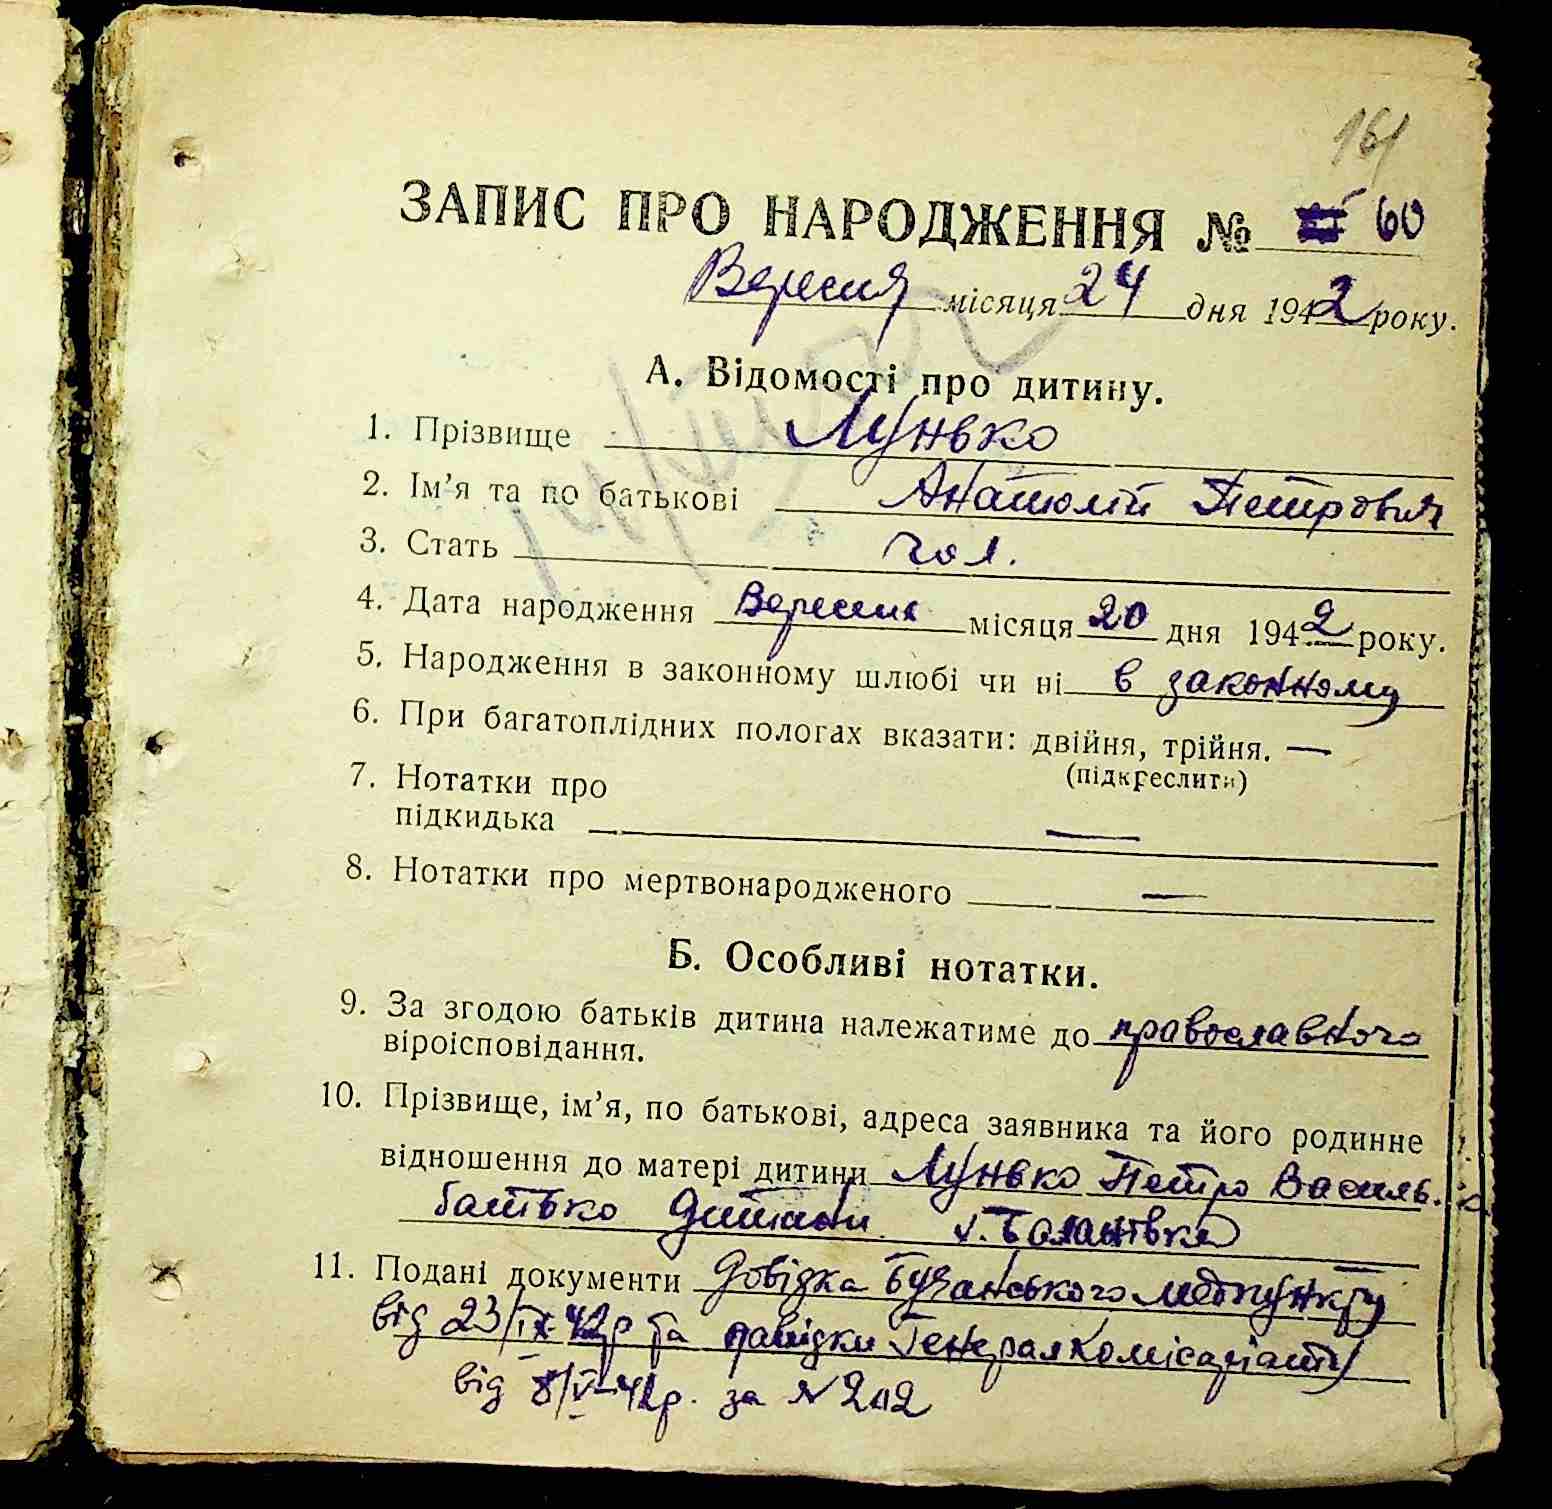 161
ЗАПИС ПРО НАРОДЖЕННЯ № 60
Вересня місяця 24 дня 1942 року.
А. Відомості про дитину.
1. Прізвище Лунько
2. Ім’я та по батькові Анатолій Петрович
3. Стать чол.
4. Дата народження Вересня місяця 20 дня 1942 року.
5. Народження в законному шлюбі чи ні в законному
6. При багатоплідних пологах вказати: двійня, трійня. —
(підкреслити)
7. Нотатки про
підкидька —
8. Нотатки про мертвонародженого —
Б. Особливі нотатки.
9. За згодою батьків дитина належатиме до православного
віроісповідання.
10. Прізвище, ім’я, по батькові, адреса заявника та його родинне
відношення до матері дитини Лунько Петро Василь.
батько дитини
11. Подані документи Довідка Бучанського медпункту
від 23/IX-42р та Генералкомісаріату
від 8/V-42р. за N 202